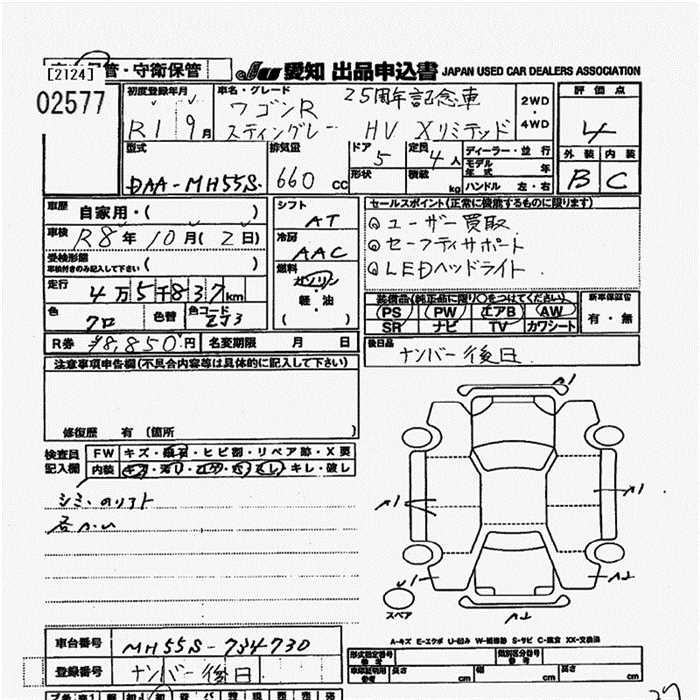 [2124]
管・守衛保管
愛知 出品申込書 JAPAN USED CAR DEALERS ASSOCIATION
02577
初度登録年月
R1 9月
車名・グレード
ワゴンR 25周年記念車
スティングレー HV Xリミテッド
2WD
・
4WD
評価点
4
外装 内装
B C
型式
DAA-MH55S
排気量
660 cc
ドア 5
形状
定員 4人
積載 kg
ディーラー・並行
モデル年式 年
ハンドル 左・右
車歴 自家用・( )
車検 R8年10月(2日)
受検形態
車検付きのみ記入して下さい ( )
走行 4万5千837km
色 クロ 色替 色コード ZJ3
シフト
AT
冷房
AAC
燃料
ガソリン
軽・油
( )
セールスポイント(正常に機能するものに限ります)
ユーザー買取
セーフティサポート
LEDヘッドライト
装備品(純正品に限り○をつけてください)
PS PW エアB AW
SR ナビ TV カワシート
新車保証書
有・無
R券 ¥8,850円 名変期限 月 日
後日品
ナンバー後日
注意事項申告欄(不具合内容等は具体的に記入して下さい)
修復歴 有 (箇所
検査員
記入欄
FW キズ・飛石・ヒビ割・リペア跡・X要
内装 キレ・破し
シミ
A1
A1
A1
U1
A2
A2
スペア
A-キズ E-エクボ U-凹み W-補修跡 S-サビ C-腐食 XX-交換済
車台番号 MH55S-734730
登録番号 ナンバー後日
型式指定番号
類別区分番号
長さ cm 幅 cm 高さ cm